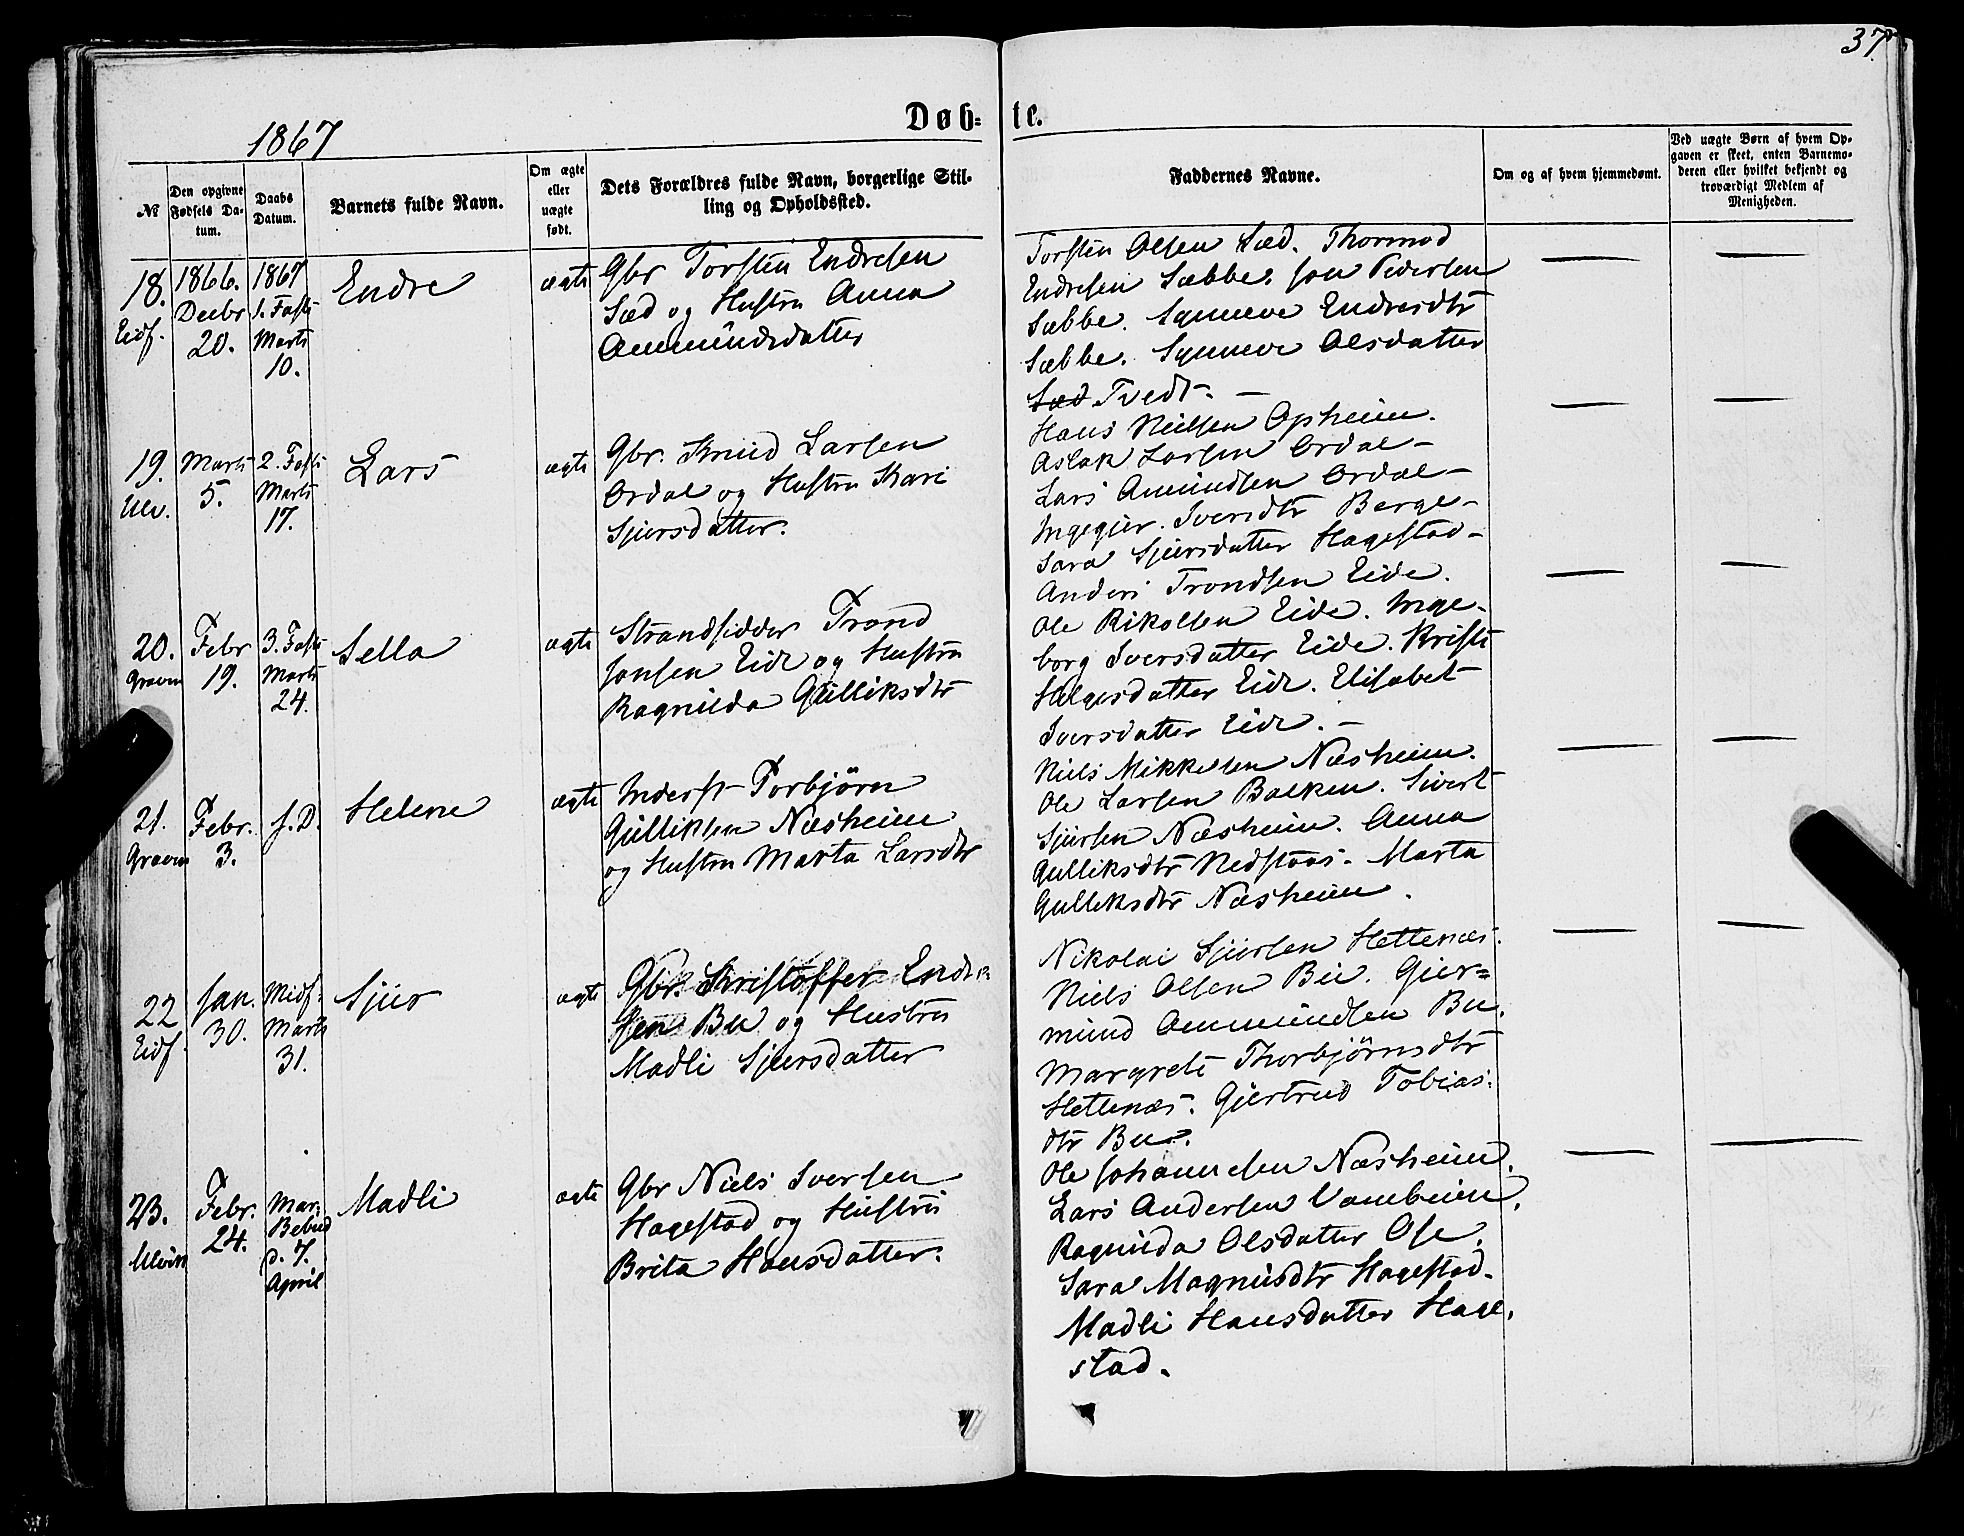 37.
Døb=
te.
1867
№
Den opgivne Fødsels Da-
tum.
Daabs
Datum.
Barnets fulde Navn.
Om ægte
eller
uægte
født.
Dets Forældres fulde Navn, borgerlige Stil-
ling og Opholdssted.
Faddernes Navne.
Om og af hvem hjemmedømt.
Ved uægte Børn af hvem Op-
gaven er skeet, enten Barnemo-
deren eller hvilket bekjendt og
troværdigt Medlem af
Menigheden.
18.
Eidf.
1866.
Decbr
20.
1867
1. Faste
Marts
10.
Endre
ægte
Gbr Torsten Endresen
Sæd og Hustru Anna
Ammundsdatter
Torsten Olsen Sæd. Thormod
Endresen Sæbbe. Jon Pedersen
Sæbbe. Synneve Endresdtr
Sæbbe. Synneve Olsdatter
Sæd Tvedt. —
19.
Ulv.
Marts
5.
2. Faste
Marts
17.
Lars
ægte
Gbr. Knud Larsen
Ordal og Hustru Kari
Sjursdatter.
Hans Nielsen Opheim.
Aslak Larsen Ordal —
Lars Amundsen Ordal —
Ingegjer. Iversdtr Berge —
Sara Sjursdatter Hagestad —
20.
Graven
Febr
19.
3. Faste
Marts
24.
Sella
ægte
Strandsidder Trond
Jonsen Eide og Hustru
Ragnilda Gulliksdtr
Anders Trondsen Eide.
Ole Rikolsen Eide. Inge-
borg Iversdatter Eide. Kristi
Helgesdatter Eide. Elisabet
Iversdatter Eide. —
21.
Graven
Febr.
3.
s. D.
Helene
ægte
Inderst Torbjörn
Gulliksen Næsheim
og Hustru Marta Larsdtr
Niels Mikkelsen Næsheim.
Ole Larsen Bakken. Sivert
Sjursen Næsheim. Anna
Gulliksdtr Nedstaas. Marta
Gulliksdtr Næsheim.
22
Eidf.
Jan.
30.
Midf.
Marts
31.
Sjur
ægte
Gbr. Kristoffer Endre
sen Bu og Hustru
Madli Sjursdatter
Nikolai Sjursen Hellenæs.
Niels Olsen Bu. Gjer=
mund Ammundsen Bu.
Margrete Thorbjörnsdtr
Hellenæs. Gjertrud Tobias.
dtr Bu.
23.
Ulvik
Febr.
24.
Mar.
Bebud
d. 7.
April
Madli
ægte
Gbr Niels Iversen
Hagestad og Hustru
Brita Hansdatter.
Ole Johannesen Næsheim.
Lars Andersen Vambeim.
Ragnilda Olsdatter Ose.
Sara Magnusdtr Hagestad.
Madli Hansdatter Hage.
stad.